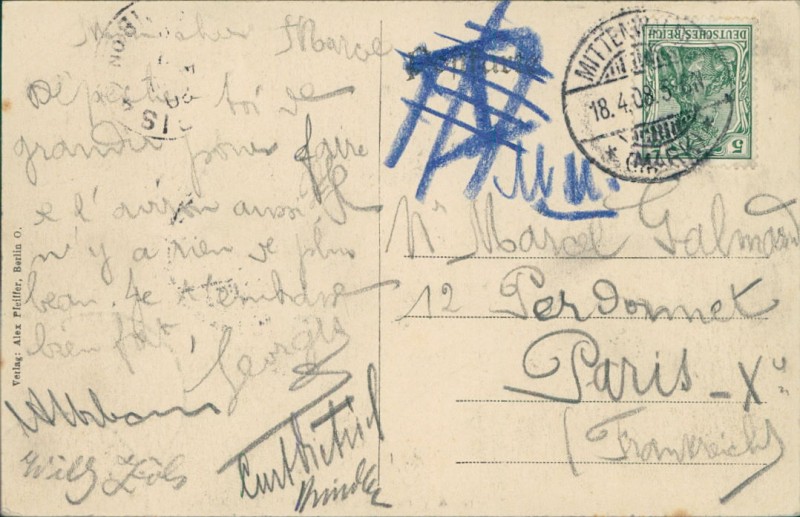 Mon cher Marcel
Dépêche toi de
grandir pour faire
de l'aviron aussi
n'y a rien de plus
beau. Je t'embrasse
bien fort,
Georges
Willy
Curt Dietrich
Verlag: Alex Pfeiffer, Berlin O.
MITTENW
18.4.08.
(MARK)
DEUTSCHES REICH
5
Mr Marcel Galmard
12 Perdonnet
Paris - X
(Frankreich)